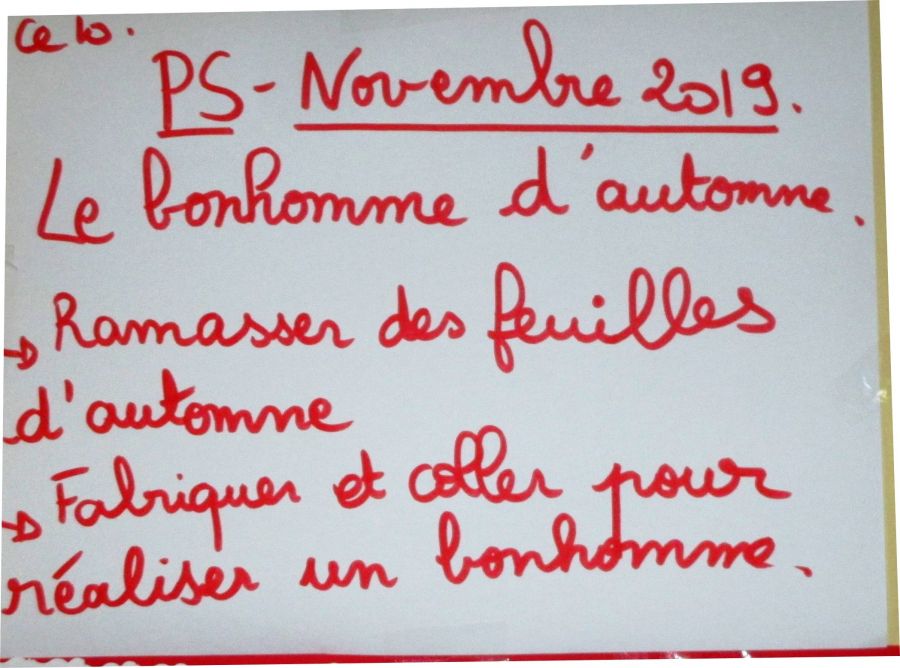 Ce 10.
PS - Novembre 2019.
Le bonhomme d'automne.
→ Ramasser des feuilles
d'automne
→ Fabriquer et coller pour
réaliser un bonhomme.